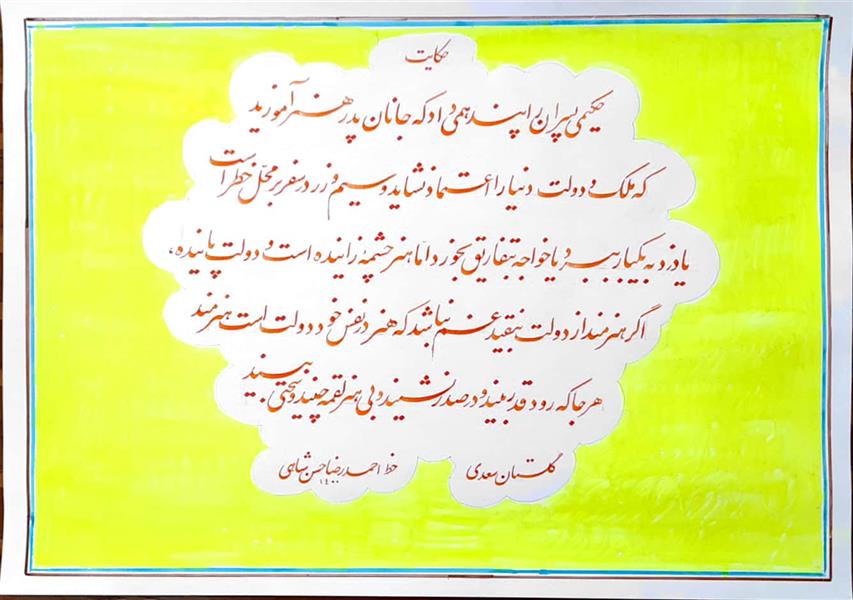 حکایت
حکیمی پسران را پند همی داد که جانان پدر هنر آموزید
که ملک و دولت دنیا را اعتماد نشاید و سیم و زر در سفر بر محل خطر است
یا دزد به یکبار ببرد یا خواجه بتفاریق بخورد اما هنر چشمهٔ زاینده است و دولت پاینده،
اگر هنرمند از دولت بیفتد غم نباشد که هنر در نفس خود دولت است هنرمند
هر جا که رود قدر بیند و در صدر نشیند و بی هنر لقمه چیند و سختی بیند.
گلستان سعدی
خط احمدرضا حسن شاهی